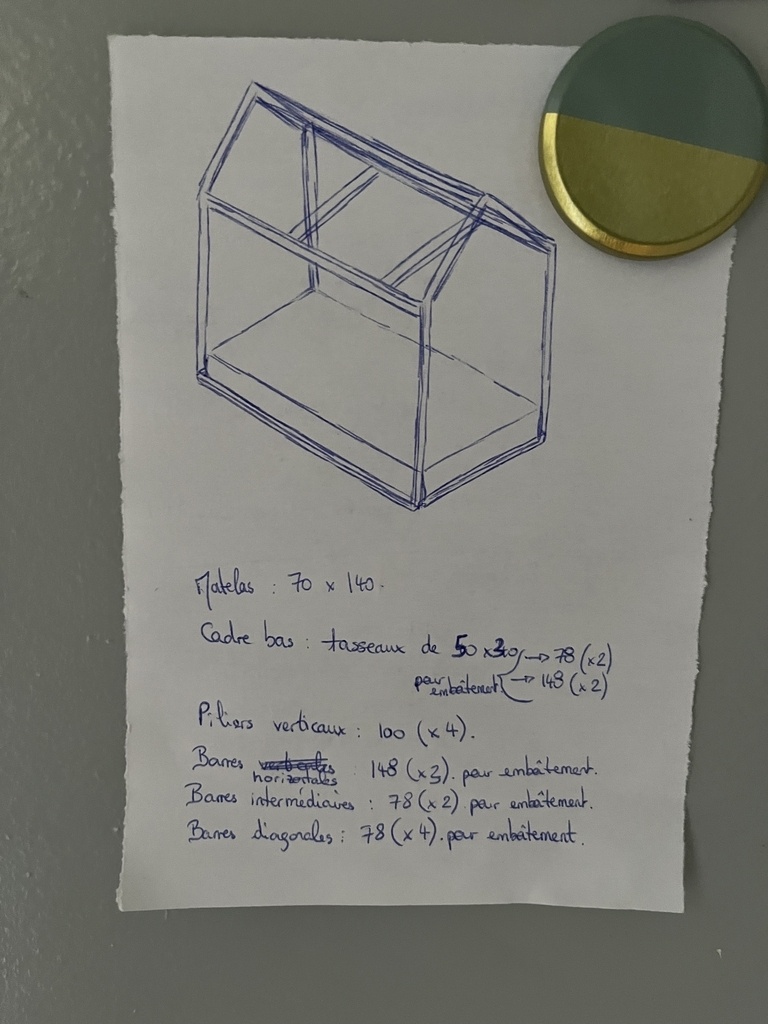 Matelas : 70 x 140.
Cadre bas : tasseaux de 50 x → 78 (x2)
pour embâtement → 148 (x2)
Piliers verticaux : 100 (x4).
Barres horizontales : 148 (x3). pour embâtement.
Barres intermédiaires : 78 (x2) pour embâtement.
Barres diagonales : 78 (x4). pour embâtement.